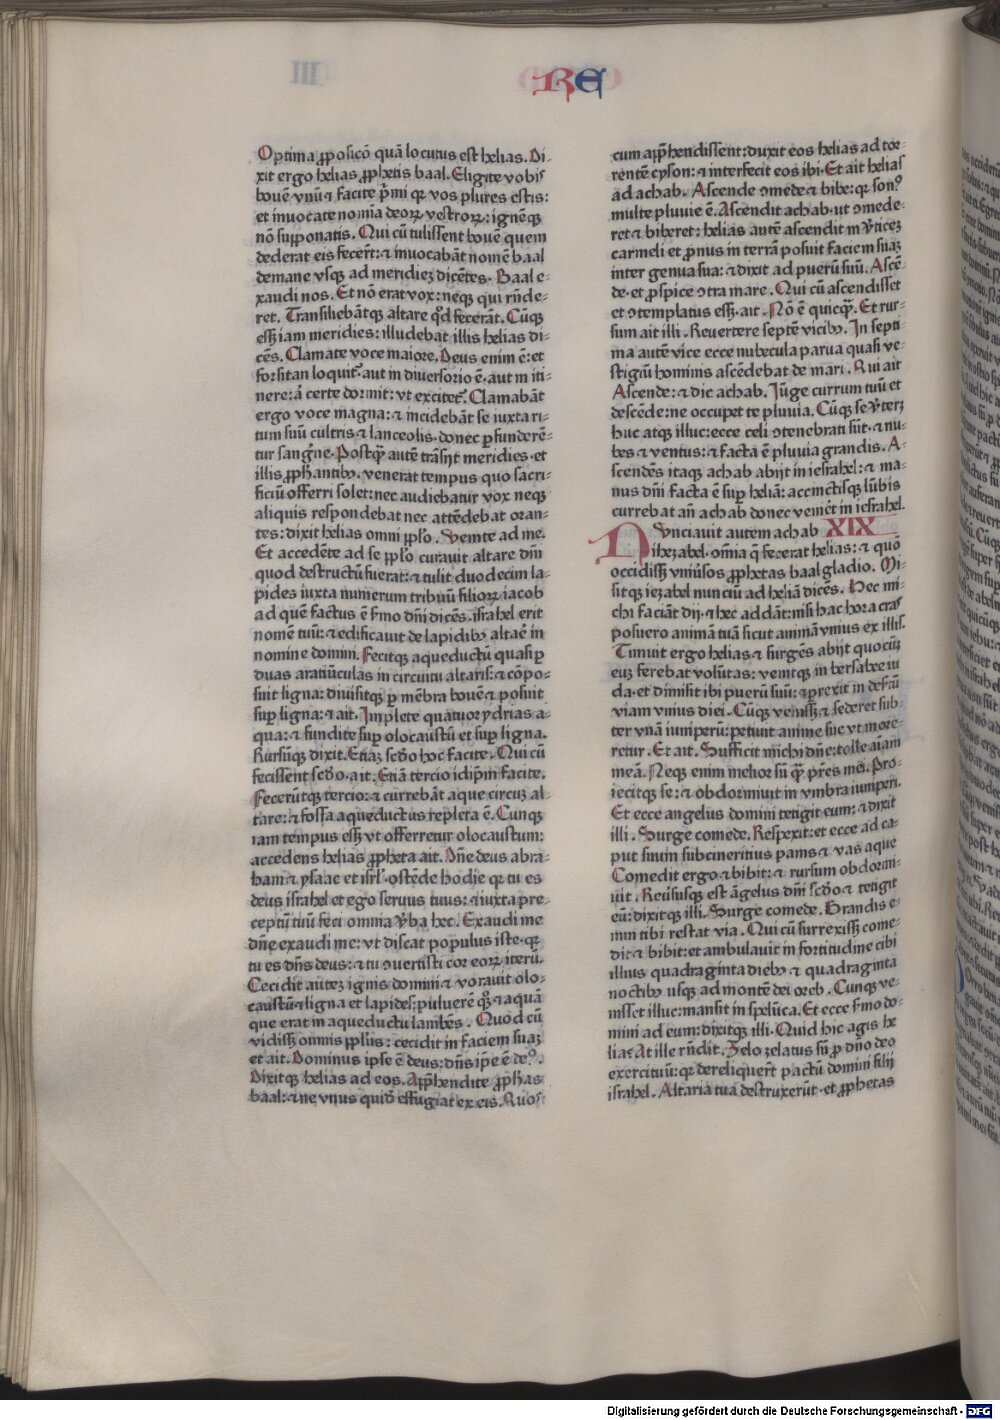 RE
Optima ꝓposicō quā locutus est helias. Di-
xit ergo helias ꝓphetis baal. Eligite vobis
bouē vnū ⁊ facite p̄mi qꝛ vos plures estis:
et inuocate nomīa deoꝝ vestroꝝ: ignēqꝫ
nō supponatis. Qui cū tulissent bouē quem
dederat eis fecer̄t: ⁊ inuocabāt nomē baal
demane vsqꝫ ad meridieꝫ dicētes. Baal e-
xaudi nos. Et nō erat vox: neqꝫ qui rn̄de-
ret. Transiliebātqꝫ altare qd̄ fecerāt. Cūqꝫ
essꝫ iam meridies: illudebat illis helias di-
cēs. Clamate voce maiore. Deus enim ē: et
forsitan loquit᷑ aut in diuersorio ē. aut in iti-
nere: a᷑ certe dormit: vt excitet᷑. Clamabāt
ergo voce magna: ⁊ incidebāt se iuxta ri-
tum suū cultris ⁊ lanceolis. donec ꝑfunderē-
tur sangīne. Postqꝫ̄ autē trāsijt meridies. et
illis ꝓphantibꝫ. venerat tempus quo sacri-
ficiū offerri solet: nec audiebatur vox neqꝫ
aliquis respondebat nec attēdebat oran-
tes: dixit helias omni pp̄lo. Venite ad me.
Et accedēte ad se pp̄lo curauit altare dn̄i
quod destructū fuerat: ⁊ tulit duodecim la-
pides iuxta numerum tribuū filioꝝ iacob
ad quē factus ē s̄mo dn̄i dicēs. israhel erit
nomē tuū: ⁊ edificauit de lapidibꝫ altaē in
nomine domini. Fecitqꝫ aqueductū quasi ꝑ
duas aratiūculas in circuitu altaris: ⁊ cōpo-
suit ligna: diuisitqꝫ ꝑ mēbra bouē ⁊ posuit
suꝑ ligna: ⁊ ait. Implete quatuor ydrias a-
qua: ⁊ fundite suꝑ olocaustū et suꝑ ligna.
Rursūqꝫ dixit. Etiaꝫ scd̄o hoc facite. Qui cū
fecissent scd̄o. ait. Etiā tercio idip̄m facite.
Fecerūtqꝫ tercio: ⁊ currebāt aque circuꝫ al-
tare: ⁊ fossa aqueductus repleta ē. Cunqꝫ
iam tempus essꝫ vt offerretur olocaustum:
accedens helias ꝓpheta ait. Dn̄e deus abra-
ham ⁊ ysaac et isrl̄. ostēde hodie qꝛ tu es
deus israhel et ego seruus tuus: ⁊ iuxta pre-
ceptū tuū feci omnia v̄ba hec. Exaudi me
dn̄e exaudi me: vt discat populus iste. qꝛ
tu es dn̄s deus: ⁊ tu ꝯuertisti cor eoꝝ iterū.
Cecidit auteꝫ ignis domini ⁊ vorauit olo-
caustū ⁊ ligna et lapides: puluerē qꝫ ⁊ aquā
que erat in aqueductu lambēs. Quod cū
vidissꝫ omnis pp̄lus: cecidit in faciem suaꝫ
et ait. Dominus ipse ē deus: dn̄s ip̄e ē deꝰ.
Dixitqꝫ helias ad eos. App̄hendite ꝓph̄as
baal: ⁊ ne vnus quidē effugiat ex eis. Quos
cum app̄hendissent: duxit eos helias ad tor-
rentē cyson: ⁊ interfecit eos ibi. Et ait helias
ad achab. Ascende ꝯmede ⁊ bibe: qꝛ sonꝰ
multe pluuie ē. Ascendit achab. ut ꝯmede-
ret ⁊ biberet: helias autē ascendit in v̄ticeꝫ
carmeli et ꝓnus in terrā posuit faciem suaꝫ
inter genua sua: ⁊ dixit ad puerū suū. Ascē-
de. et ꝓspice ꝯtra mare. Qui cū ascendisset
et ꝯtemplatus essꝫ. ait. Nō ē quicqꝫ̄. Et rur-
sum ait illi. Reuertere septē vicibꝫ. In septi-
ma autē vice ecce nubecula parua quasi ve-
stigiū hominis ascēdebat de mari. Qui ait
Ascende: ⁊ dic achab. Jūge currum tuū et
descēde: ne occupet te pluuia. Cūqꝫ se v̄teꝫ
huc atqꝫ illuc: ecce celi ꝯtenebrati sūt. ⁊ nu-
bes ⁊ ventus: ⁊ facta ē pluuia grandis. A-
scendēs itaqꝫ achab abijt in iesrahel: ⁊ ma-
nus dn̄i facta ē suꝑ heliā: accinctisqꝫ lūbis
currebat an̄ achab donec veniēt in iesrahel.
Nvnciauit autem achab XIX
ihezabel. om̄ia q̄ fecerat helias: ⁊ quō
occidissꝫ vniūsos ꝓphetas baal gladio. Mi-
sitqꝫ iezabel nunciū ad heliā dicēs. Hec mi-
chi faciāt dij. ⁊ hec addāt: nisi hac hora cras
posuero animā tuā sicut animā vnius ex illis.
Timuit ergo helias ⁊ surgēs abijt quocūꝫ
euꝫ ferebat volūtas: venitqꝫ in bersabee iu
da. et dimisit ibi puerū suū: ⁊ ꝑrexit in des̄tū
viam vnius diei. Cūqꝫ venissꝫ ⁊ sederet sub-
ter vnā iuniperū: petiuit anime sue vt more-
retur. Et ait. Sufficit michi dn̄e: tolle aīam
meā. Neqꝫ enim melior sū qꝫ̄ pr̄es mei. Pro-
iecitqꝫ se: ⁊ obdormiuit in vmbra iuniperi.
Et ecce angelus domini tetigit eum: ⁊ dixit
illi. Surge comede. Respexit: et ecce ad ca-
put suum subcinericius panis ⁊ vas aque
Comedit ergo ⁊ bibit: ⁊ rursum obdormi-
uit. Reūsusqꝫ est āgelus dn̄i scd̄o ⁊ tetigit
eū: dixitqꝫ illi. Surge comede. Grandis e-
nim tibi restat via. Qui cū surrexissꝫ come-
dit ⁊ bibit: et ambulauit in fortitudine cibi
illius quadraginta diebꝫ ⁊ quadraginta
noctibꝫ usqꝫ ad montē dei oreb. Cunqꝫ ve-
nisset illuc: mansit in spelūca. Et ecce s̄mo do-
mini ad eum: dixitqꝫ illi. Quid hic agis he
lia? At ille rn̄dit. Zelo zelatus sū ꝓ dn̄o deo
exercituū: qꝛ dereliquer̄t pactū domini filij
israhel. Altaria tua destruxerūt. et ꝓphetas
Digitalisierung gefördert durch die Deutsche Forschungsgemeinschaft - DFG